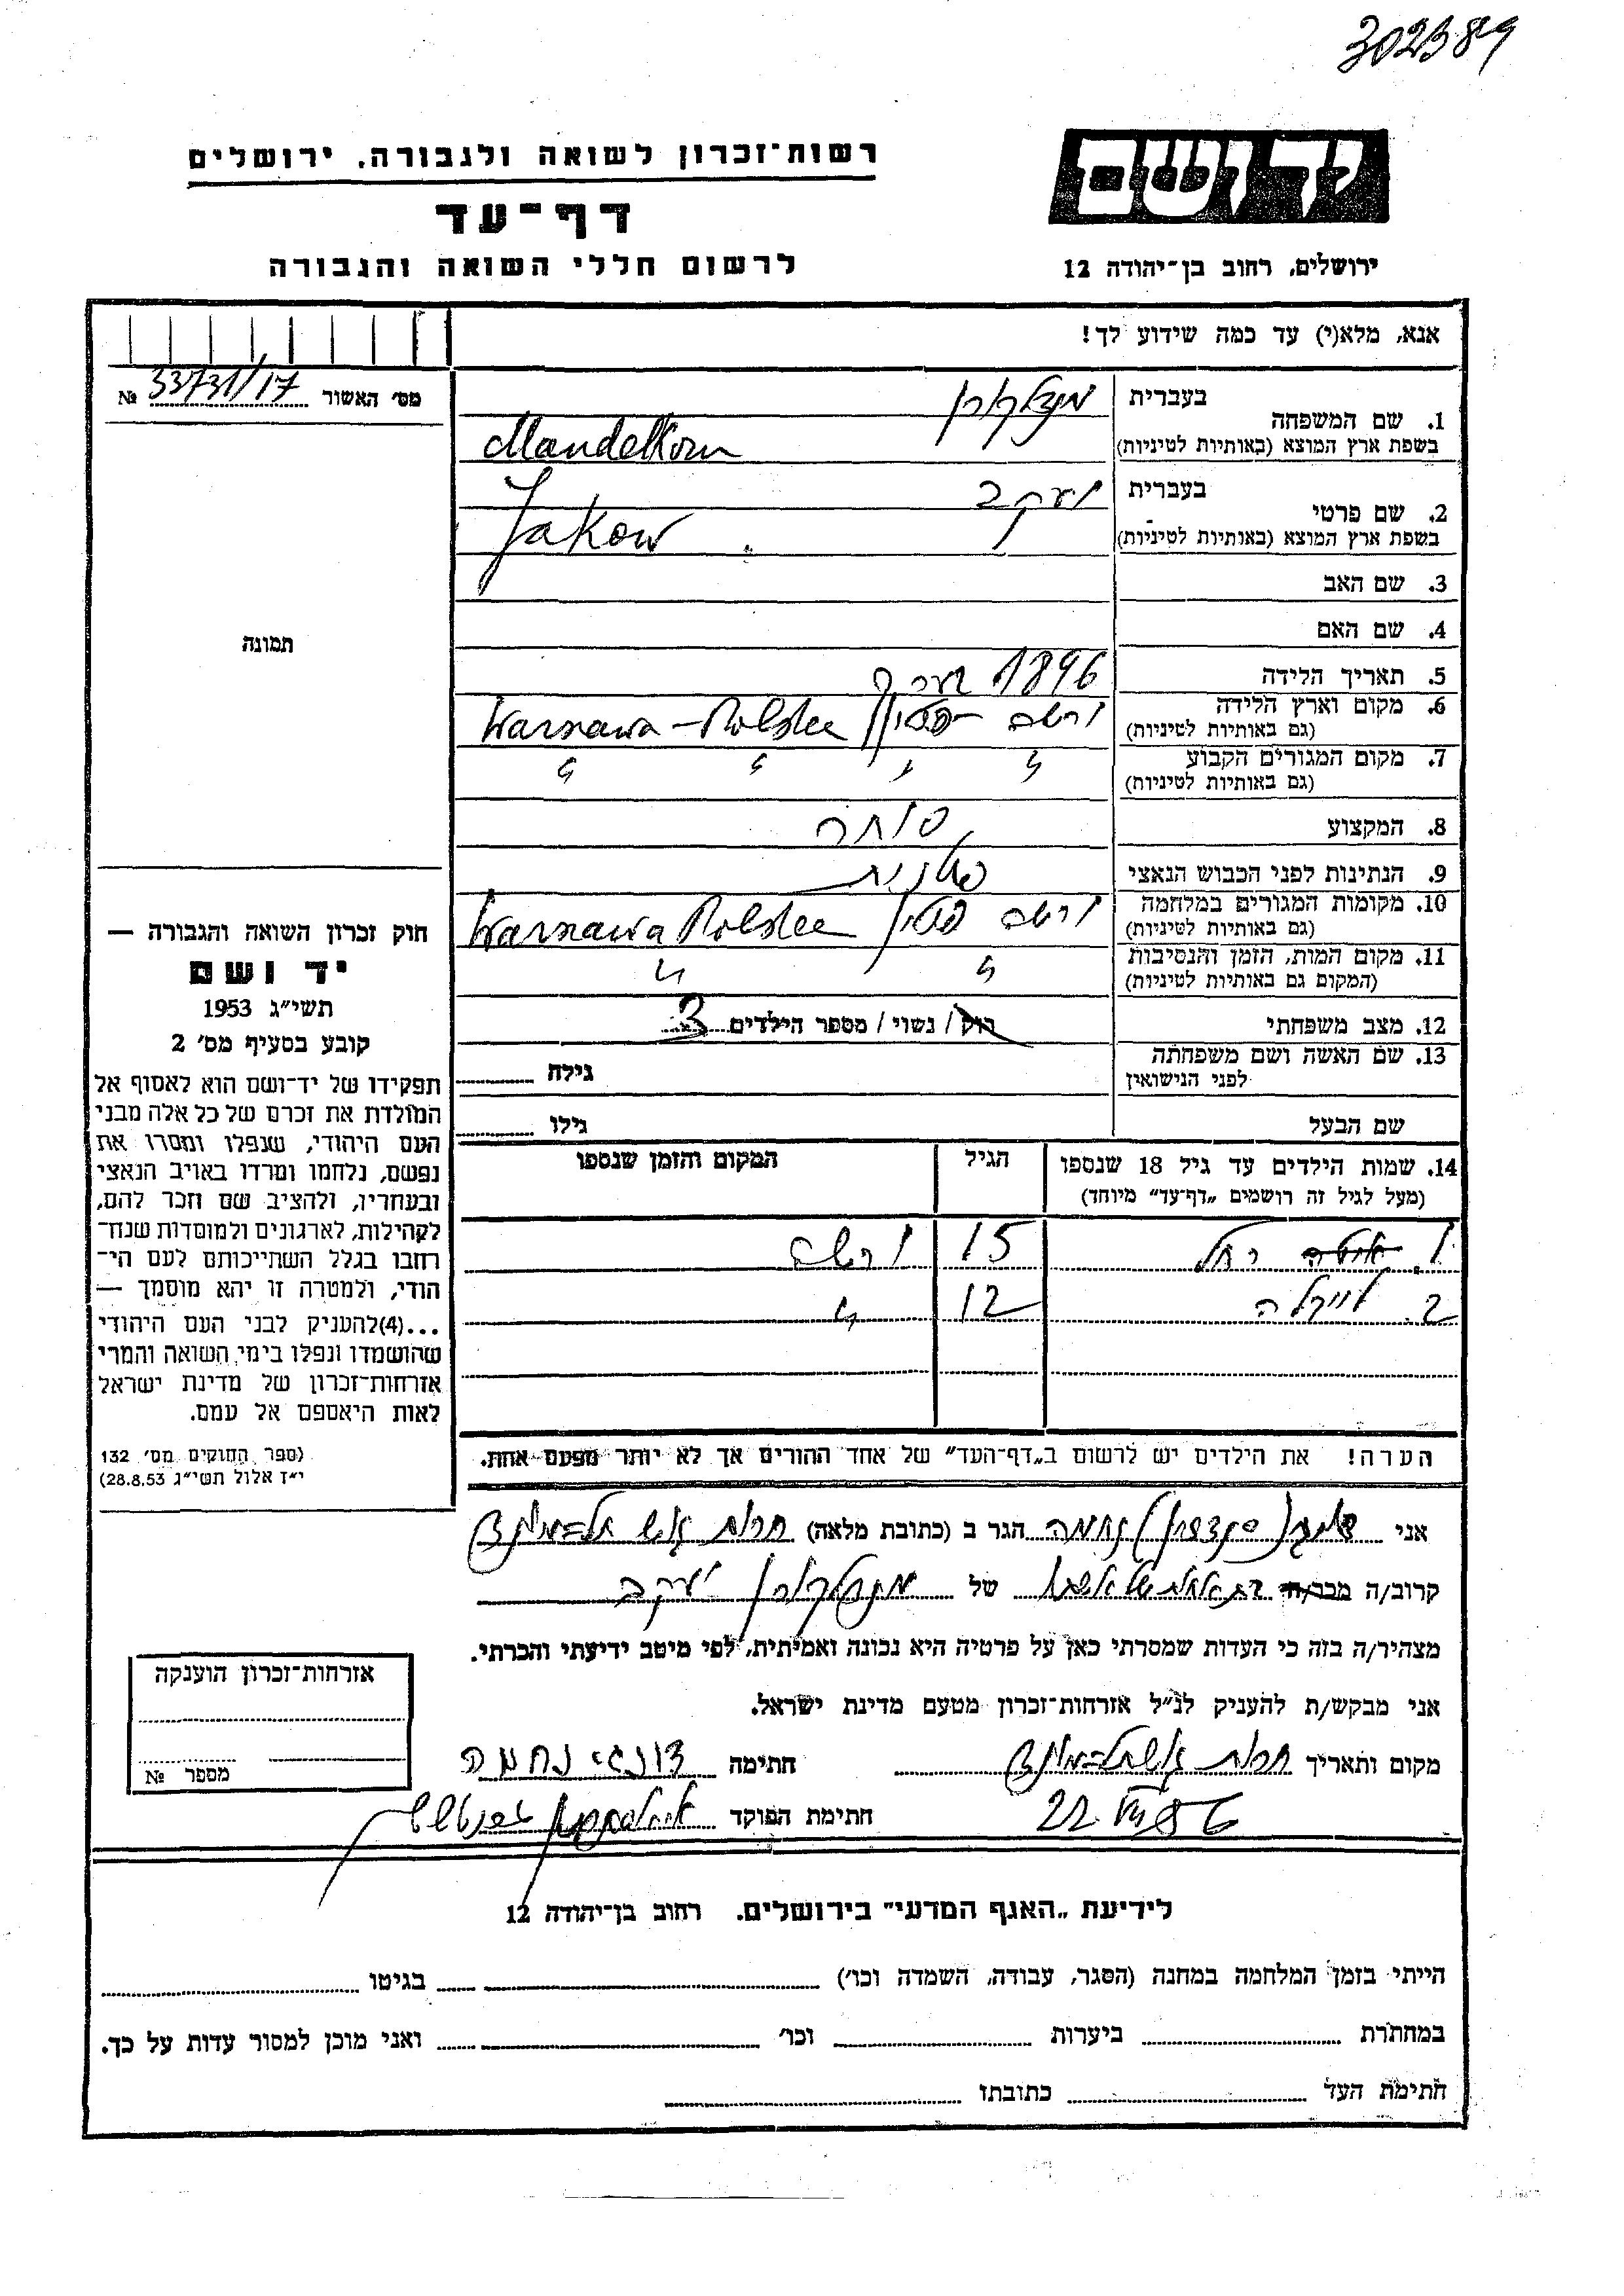 302389
יד ושם
רשות־זכרון לשואה ולגבורה. ירושלים
דף־עד
לרשום חללי השואה והגבורה
ירושלים, רחוב בן־יהודה 12
אנא, מלא(י) עד כמה שידוע לך!
מס׳ האשור 33731/17 №
1. שם המשפחה
בעברית מנדלקורן
בשפת ארץ המוצא (באותיות לטיניות) Mandelkorn
2. שם פרטי
בעברית יעקב
בשפת ארץ המוצא (באותיות לטיניות) Jakow
3. שם האב
4. שם האם
תמונה
5. תאריך הלידה 1896 בערך
6. מקום וארץ הלידה ורשה – פולין Warszawa – Polska
(גם באותיות לטיניות)
7. מקום המגורים הקבוע " " " "
(גם באותיות לטיניות)
8. המקצוע סוחר
9. הנתינות לפני הכבוש הנאצי פולנית
10. מקומות המגורים במלחמה ורשה פולין Warszawa Polska
(גם באותיות לטיניות)
11. מקום המות, הזמן והנסיבות " "
(המקום גם באותיות לטיניות)
12. מצב משפחתי רווק / נשוי / מספר הילדים 3
13. שם האשה ושם משפחתה
לפני הנישואין גילה
שם הבעל גילו
14. שמות הילדים עד גיל 18 שנספו הגיל המקום והזמן שנספו
(מעל לגיל זה רושמים „דף־עד״ מיוחד)
1. רחל 15 ורשה
2. 12 "
הערה! את הילדים יש לרשום ב„דף־העד״ של אחד ההורים אך לא יותר מפעם אחת.
חוק זכרון השואה והגבורה —
יד ושם
תשי״ג 1953
קובע בסעיף מס׳ 2
תפקידו של יד־ושם הוא לאסוף אל
המולדת את זכרם של כל אלה מבני
העם היהודי, שנפלו ומסרו את
נפשם, נלחמו ומרדו באויב הנאצי
ובעוזריו, ולהציב שם וזכר להם,
לקהילות, לארגונים ולמוסדות שנח־
רבו בגלל השתייכותם לעם הי־
הודי, ולמטרה זו יהא מוסמך —
...(4)להעניק לבני העם היהודי
שהושמדו ונפלו בימי השואה והמרי
אזרחות־זכרון של מדינת ישראל
לאות היאספם אל עמם.
(ספר החוקים מס׳ 132
י״ז אלול תשי״ג 28.8.53)
אני נחמה הגר ב (כתובת מלאה)
קרוב/ה מכר/ה של מנדלקורן יעקב
מצהיר/ה בזה כי העדות שמסרתי כאן על פרטיה היא נכונה ואמיתית, לפי מיטב ידיעתי והכרתי.
אני מבקש/ת להעניק לנ״ל אזרחות־זכרון מטעם מדינת ישראל.
מקום ותאריך חתימה נחמה
22.VIII 86 חתימת הפוקד
אזרחות־זכרון הוענקה
מספר №
לידיעת „האגף המדעי״ בירושלים. רחוב בן־יהודה 12
הייתי בזמן המלחמה במחנה (הסגר, עבודה, השמדה וכו׳) בגיטו
במחתרת ביערות וכו׳ ואני מוכן למסור עדות על כך.
חתימת העד כתובתו